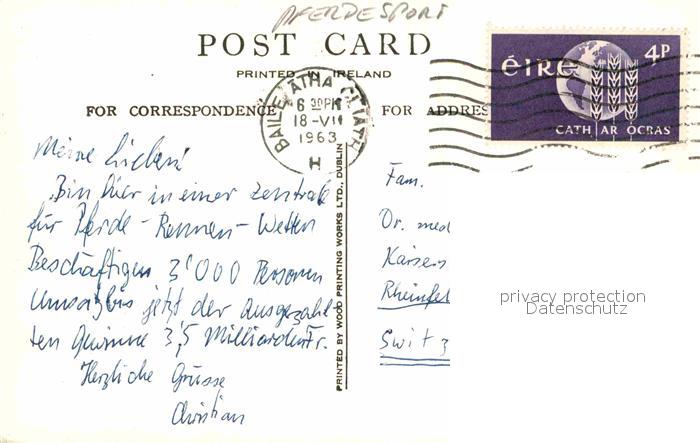 PFERDESPORT
POST CARD
PRINTED IN IRELAND
FOR CORRESPONDENCE
FOR ADDRES
BAILE ÁTHA CLIATH
6 30PM
18-VII
1963
H
éIRe
4P
CATH AR OCRAS
Meine Lieben!
Bin hier in einer Zentrale
für Pferde-Rennen-Wetten
Beschäftigen 3'000 Personen
Umsatz bis jetzt der ausgezahl-
ten Gewinne 3,5 Milliarden Fr.
Herzliche Grüsse
Christian
PRINTED BY WOOD PRINTING WORKS LTD., DUBLIN
Fam.
Dr. med
Kaisers
Rheinfel
Switz
privacy protection
Datenschutz